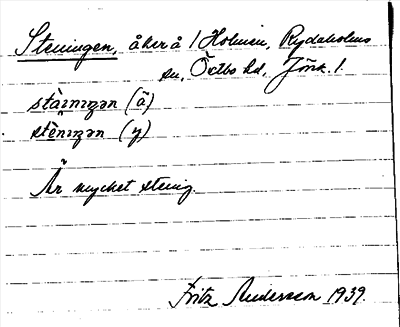 Steningen, åker å 1 Holmen, Rydaholms
sn, Östbo hd, Jönk. l.
(ä)
(y)
Är mycket stenig.
Fritz Andersson 1939.